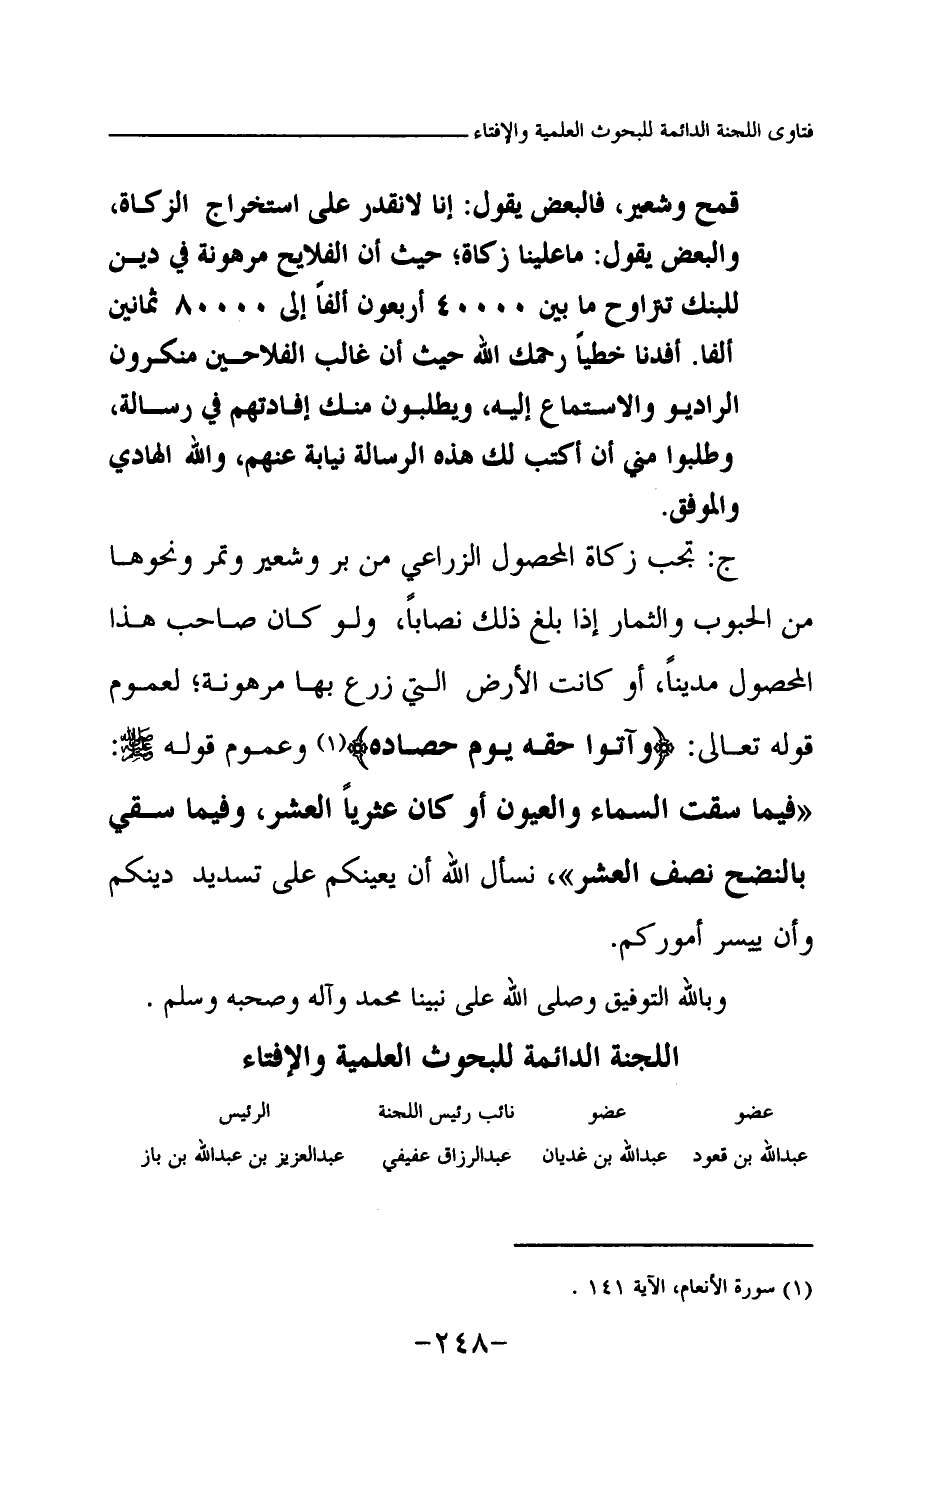 فتاوى اللجنة الدائمة للبحوث العلمية والإفتاء
قمح وشعير، فالبعض يقول: إنا لانقدر على استخراج الزكاة،
والبعض يقول: ماعلينا زكاة؛ حيث أن الفلايح مرهونة في ديـن
للبنك تتراوح ما بين ٤٠٠٠٠ أربعون ألفاً إلى ٨٠٠٠٠ ثمانين
ألفا. أفدنا خطياً رحمك الله حيث أن غالب الفلاحـين منكـرون
الراديـو والاسـتماع إليـه، ويطلبـون منـك إفـادتهم في رسـالة،
وطلبوا مني أن أكتب لك هذه الرسالة نيابة عنهم، والله الهادي
والموفق.
ج: تجب زكاة المحصول الزراعي من بر وشعير وتمر ونحوهـا
من الحبوب والثمار إذا بلغ ذلك نصاباً، ولـو كـان صـاحب هـذا
المحصول مديناً، أو كانت الأرض الـتي زرع بهـا مرهونـة؛ لعمـوم
قوله تعـالى: ﴿وآتـوا حقـه يـوم حصـاده﴾(١) وعمـوم قولـه ﷺ:
«فيمـا سقت السـماء والعيون أو كان عثرياً العشر، وفيمـا سـقي
بالنضح نصف العشر»، نسأل الله أن يعينكم على تسديد دينكم
وأن ييسر أموركم.
وبالله التوفيق وصلى الله على نبينا محمد وآله وصحبه وسلم .
اللجنة الدائمة للبحوث العلمية والإفتاء
عضو عضو نائب رئيس اللجنة الرئيس
عبدالله بن قعود عبدالله بن غديان عبدالرزاق عفيفي عبدالعزيز بن عبدالله بن باز
(١) سورة الأنعام، الآية ١٤١ .
-٢٤٨-